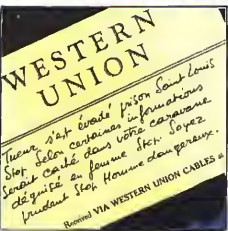 WESTERN
UNION
Tueur s'est évadé prison Saint Louis
Stop. Selon certaines informations
serait caché dans votre caravane
déguisé en femme Stop. Soyez
prudent Stop Homme dangereux.
Received VIA WESTERN UNION CABLES